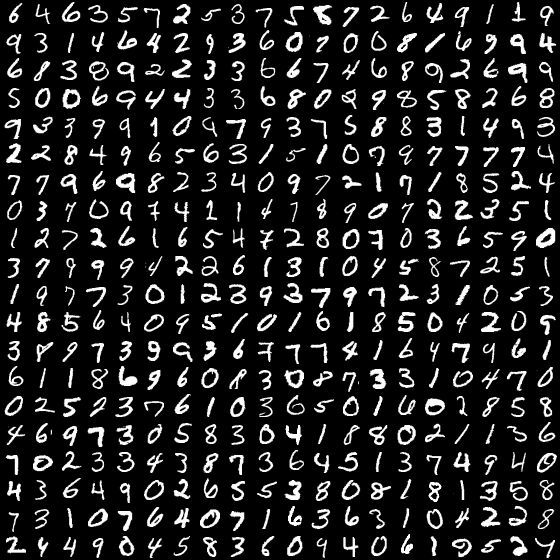 6 4 6 3 5 7 2 5 3 7 5 8 7 2 6 4 9 1 1 9
9 3 1 4 6 4 2 9 3 6 0 7 0 0 8 1 6 9 9 4
6 8 3 8 9 2 2 3 3 6 6 7 4 6 8 9 2 6 9 9
5 0 0 6 9 4 4 3 3 6 8 0 8 9 8 5 8 2 6 8
9 3 3 9 9 1 0 9 7 9 3 7 5 8 8 3 1 4 9 3
2 2 8 4 9 6 5 6 3 1 5 1 0 7 9 7 7 7 7 4
7 7 9 6 9 8 2 3 4 0 9 7 2 1 7 1 8 5 2 4
0 3 7 0 9 7 4 1 1 4 7 8 9 0 7 2 2 3 5 1
1 2 7 2 6 1 6 5 4 7 2 8 0 7 0 3 6 5 9 0
3 7 9 9 9 4 2 2 6 1 3 1 0 4 5 8 7 2 5 1
1 9 7 7 3 0 1 2 3 9 3 7 9 7 2 3 1 0 5 3
4 8 5 6 4 0 9 5 1 0 1 6 1 8 5 0 4 2 0 9
3 8 9 7 3 9 9 3 6 7 7 7 4 1 6 4 7 9 6 1
6 1 1 8 6 9 6 0 8 3 0 8 7 3 3 1 0 4 7 0
0 2 5 2 3 7 6 1 0 3 6 5 0 1 6 0 2 8 5 8
4 6 9 7 3 0 5 8 3 0 4 1 8 8 0 2 1 1 3 6
7 0 2 3 3 4 3 8 7 3 6 4 5 1 3 7 4 9 4 0
4 3 6 4 9 0 2 6 5 5 3 8 0 8 1 8 1 3 5 8
7 3 1 0 7 6 4 0 7 1 6 3 6 3 1 0 4 2 2 8
2 4 4 9 0 4 5 8 3 6 0 9 4 0 6 1 9 5 2 4